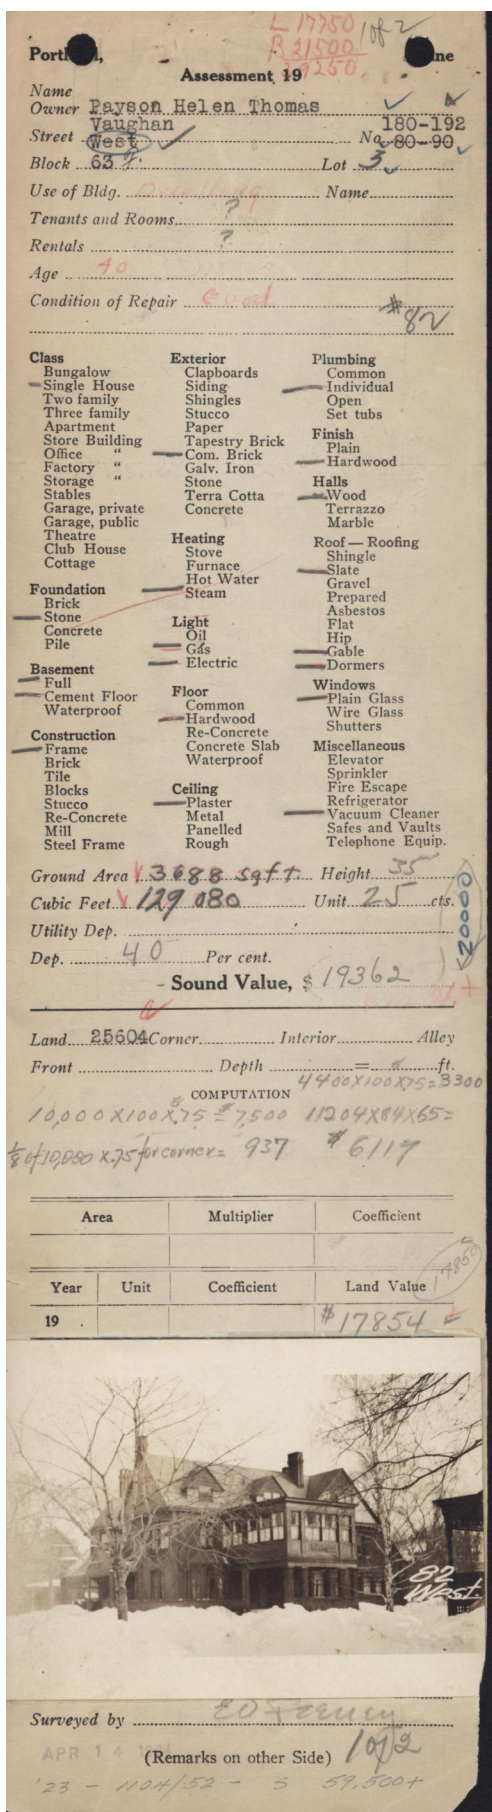 L 17750 1 of 2
B 21500
39250
Portland, Maine
Assessment 19
Name
Owner Payson Helen Thomas
Vaughan 180-192
Street West No. 80-90
Block 63 Lot 3
Use of Bldg. Dwelling Name
Tenants and Rooms ?
Rentals ?
Age 40
Condition of Repair Good
#82
Class
Bungalow
Single House
Two family
Three family
Apartment
Store Building
Office "
Factory "
Storage "
Stables
Garage, private
Garage, public
Theatre
Club House
Cottage
Foundation
Brick
Stone
Concrete
Pile
Basement
Full
Cement Floor
Waterproof
Construction
Frame
Brick
Tile
Blocks
Stucco
Re-Concrete
Mill
Steel Frame
Exterior
Clapboards
Siding
Shingles
Stucco
Paper
Tapestry Brick
Com. Brick
Galv. Iron
Stone
Terra Cotta
Concrete
Heating
Stove
Furnace
Hot Water
Steam
Light
Oil
Gas
Electric
Floor
Common
Hardwood
Re-Concrete
Concrete Slab
Waterproof
Ceiling
Plaster
Metal
Panelled
Rough
Plumbing
Common
Individual
Open
Set tubs
Finish
Plain
Hardwood
Halls
Wood
Terrazzo
Marble
Roof — Roofing
Shingle
Slate
Gravel
Prepared
Asbestos
Flat
Hip
Gable
Dormers
Windows
Plain Glass
Wire Glass
Shutters
Miscellaneous
Elevator
Sprinkler
Fire Escape
Refrigerator
Vacuum Cleaner
Safes and Vaults
Telephone Equip.
Ground Area 3688 sqft. Height 35
Cubic Feet 129 080 Unit 25 cts.
20000
Utility Dep.
Dep. 40 Per cent.
Sound Value, $ 19362
Land 25604 Corner Interior Alley
Front Depth = ft.
4400X100X75=3300
COMPUTATION
10,000X100X.75=$7,500 11204X84X65=
1/8 of 10,000 X.75 for corner= 937 $6117
Area Multiplier Coefficient
17850
Year Unit Coefficient Land Value
19 $17854
82
West
Surveyed by
APR 14
(Remarks on other Side) 1 of 2
'23 - 1104/52 - S 59,500+